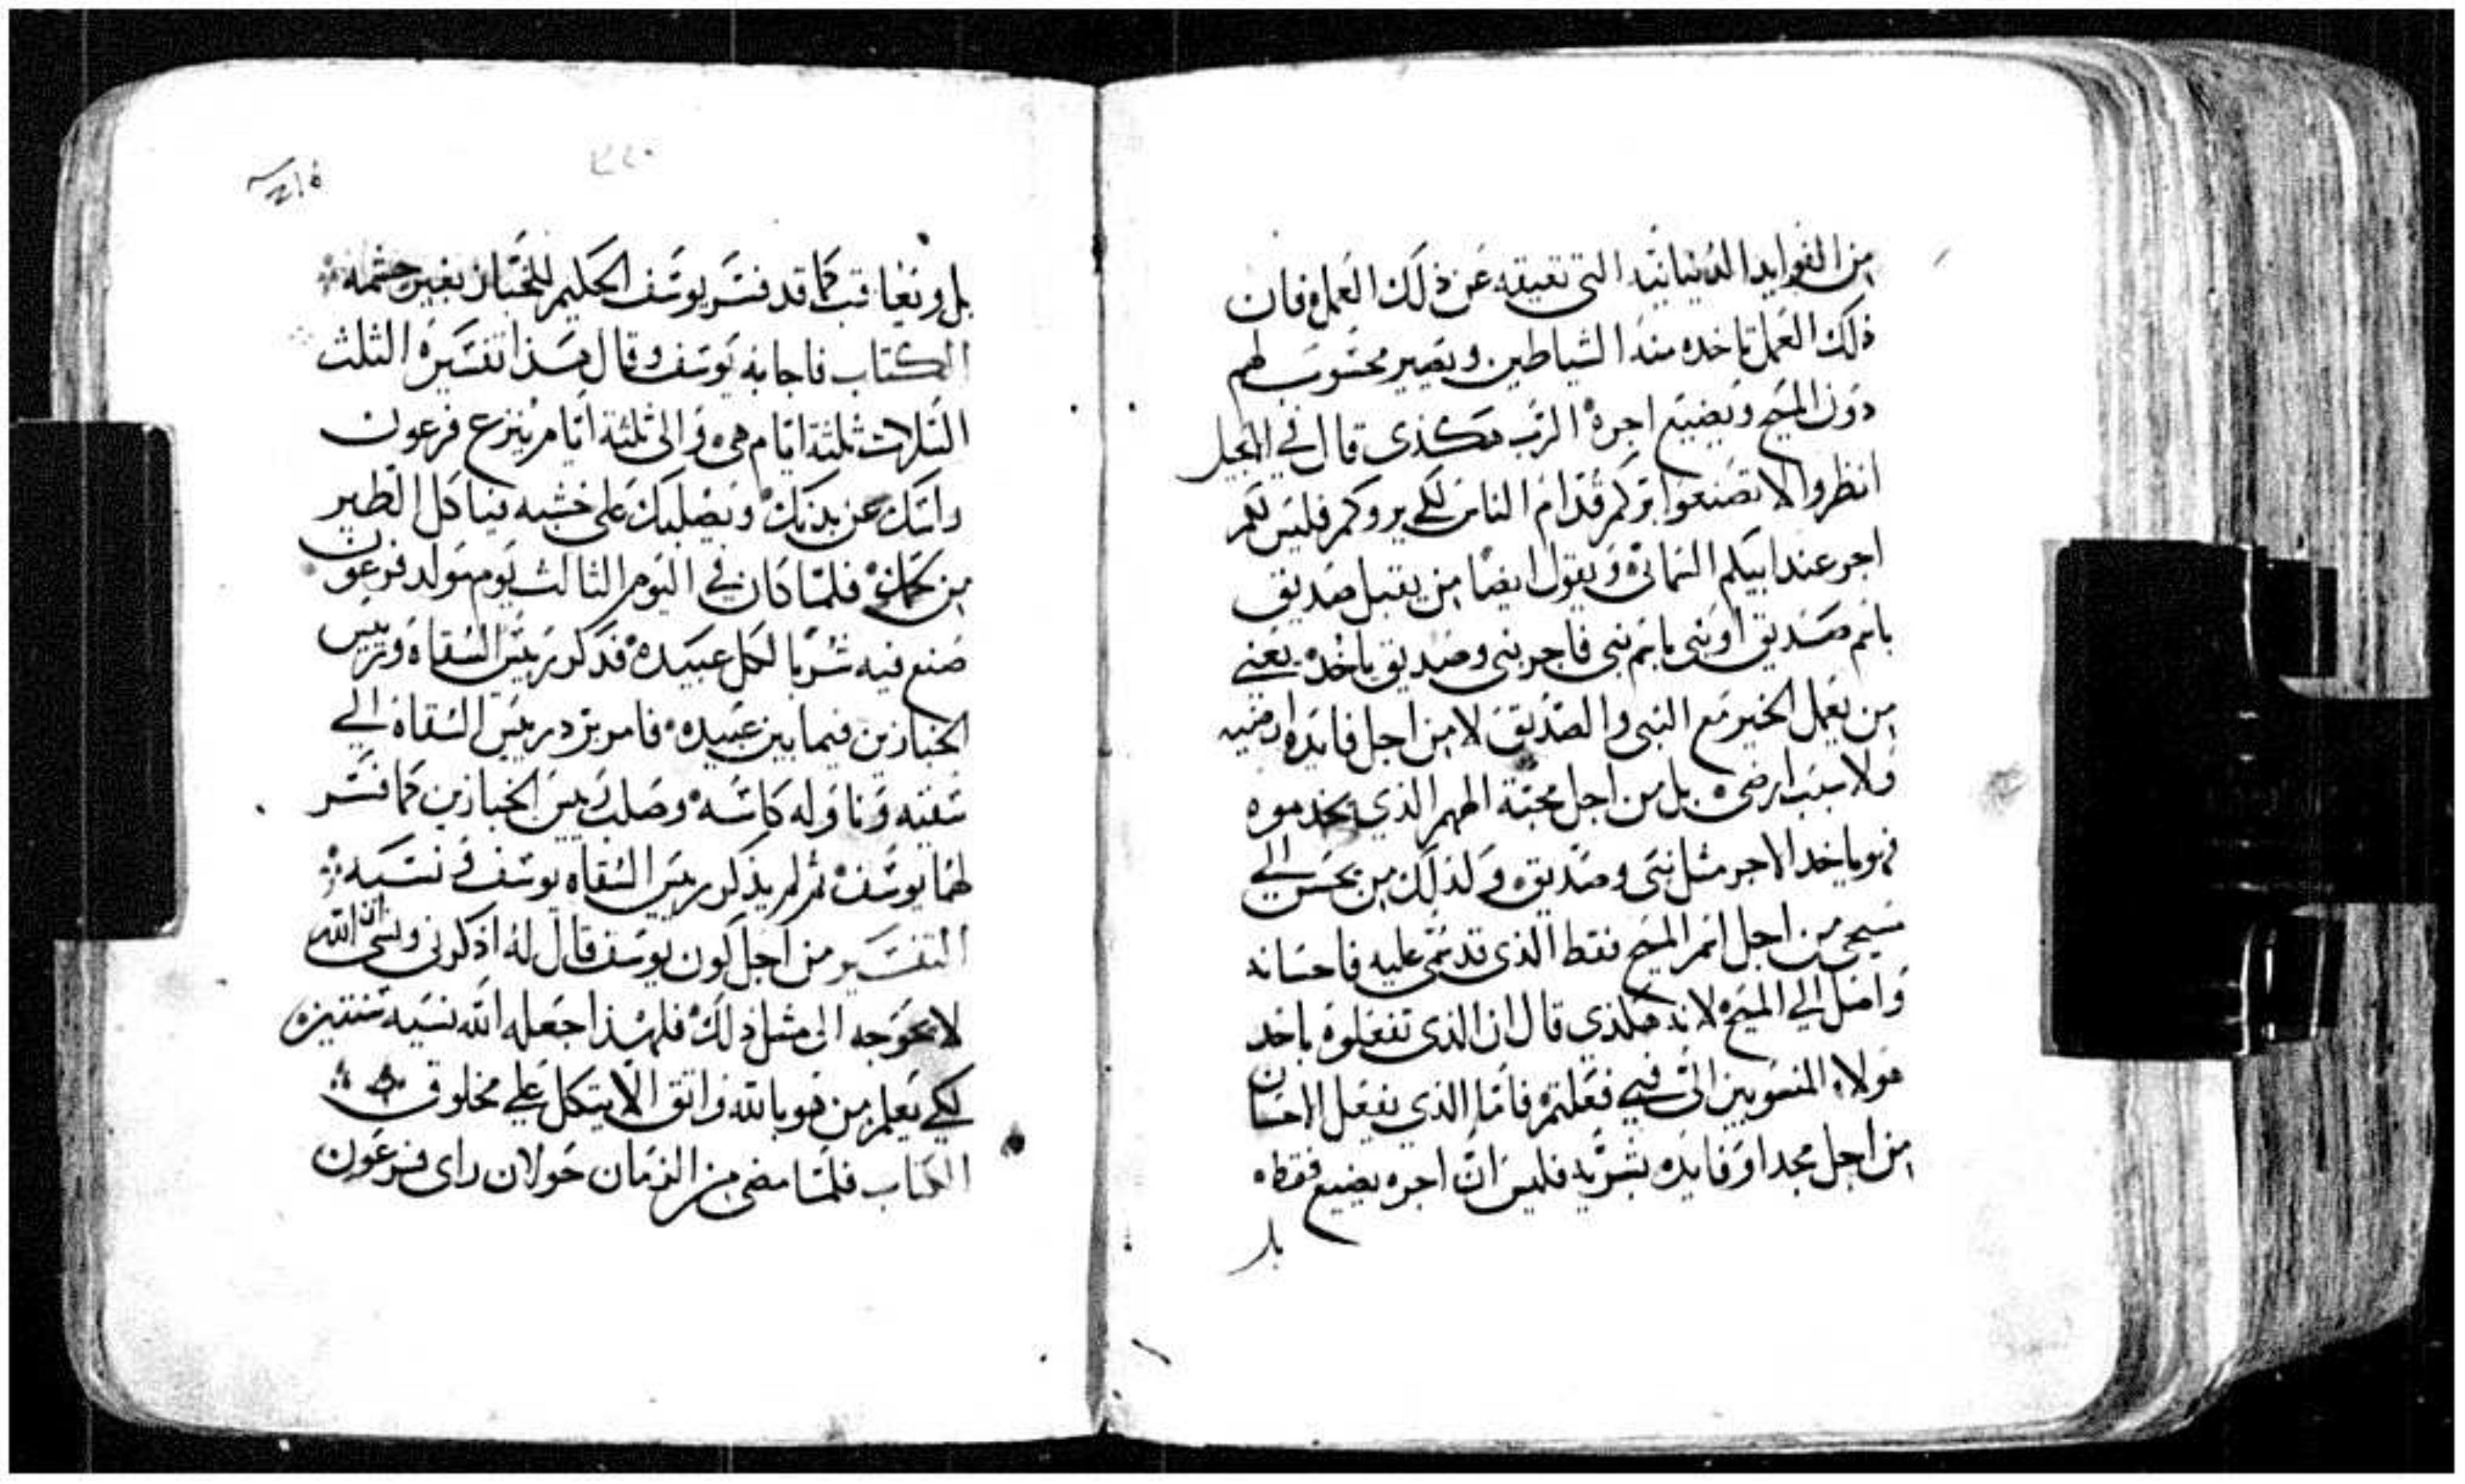 من الفوايد الدنيانيه التي تعيقه عن ذلك العمل فان
ذلك العمل تاخده منه الشياطين ويصير محسوب لهم
دون المسيح ويضيع اجرة الرب هكذى قال في انجيل
انظروا الا تصنعوا بركم قدام الناس لكي يروكم فليس لكم
اجر عند ابيكم السمائي ويقول ايضا من يقبل صديق
باسم صديق او نبي باسم نبي فاجر نبي وصديق ياخد يعني
من يعمل الخير مع النبي والصديق لا من اجل فايده ارضيه
ولا سبب ارضي بل من اجل محبة الههم الذي يخدموه
فهو ياخد الاجر مثل نبي وصديق ولذلك من يحسن الي
مسيحي من اجل اسم المسيح فقط الذي قد سمي عليه فاحسانه
واصل الي المسيح لانه هكذى قال ان الذي تفعلوه باحد
هولاء المنسوبين الي فبي فعلتم فاما الذي يفعل الاحسان
من اجل مجد او فايده بشريه فليس ان اجره يضيع فقط
بل
٢٢٠
بل ويعاقب كما قد فسر يوسف الحكيم للخباز بغير حشمه
الكتاب فاجابه يوسف وقال هذا تفسيره الثلث
الثلاث ثلثة ايام هي والى ثلثة ايام ينزع فرعون
راسك عن بدنك ويصلبك على خشبه فياكل الطير
من لحمك فلما كان في اليوم الثالث يوم مولد فرعون
صنع فيه شربا لكل عبيده فذكر ريس السقاه وريس
الخبازين فيما بين عبيده فامر برد ريس السقاة الي
سقيه وناوله كاسه وصلب ريس الخبازين كما فسر
لهما يوسف ثم لم يذكر ريس السقاه يوسف ونسيه
التفسير من اجل كون يوسف قال له اذكرني ونسي ان الله
لا يحوجه الى مثل ذلك فلهذا جعله الله نسيه سنتين
لكي يعلم من هو بالله واثق الا يتكل علي مخلوق
الكتاب فلما مضى من الزمان حولان راى فرعون